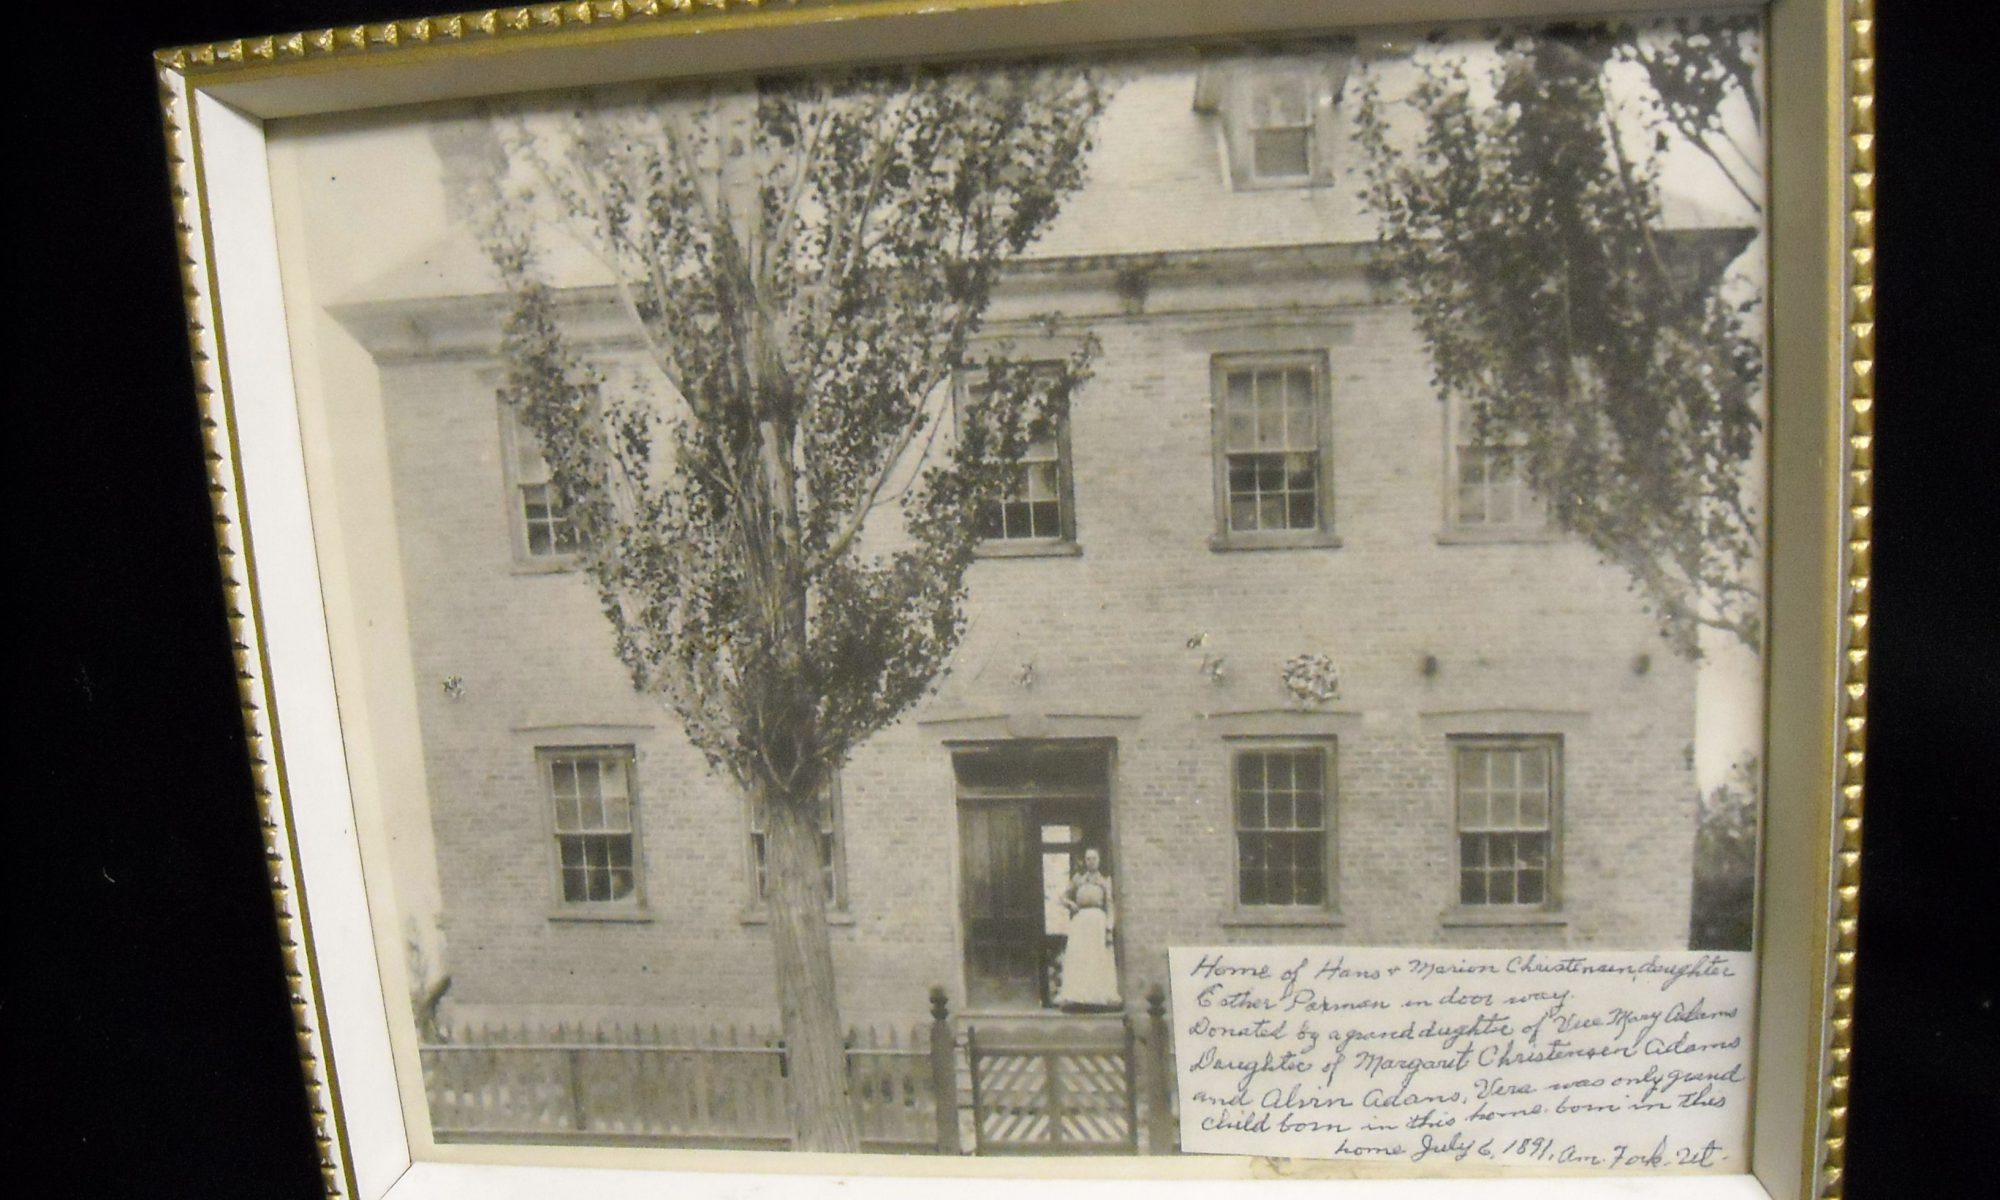 Home of Hans & Marion Christensen, daughter
Esther Parman in door way.
Donated by a granddaughter of Vee Mary Adams
Daughter of Margarit Christensen Adams
and Alvin Adams, Vera was only grand
child born in this home. born in this
home July 6, 1891, Am. Fork. Ut.